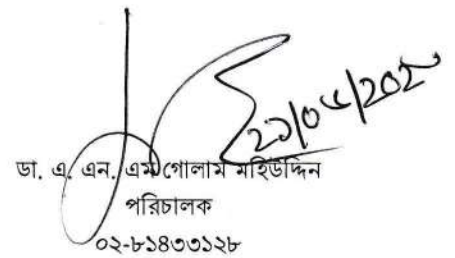 ২১/০৮/২০২
ডা. এ. এন. এম গোলাম মহিউদ্দিন
পরিচালক
০২-৮১৪৩৩১২৮